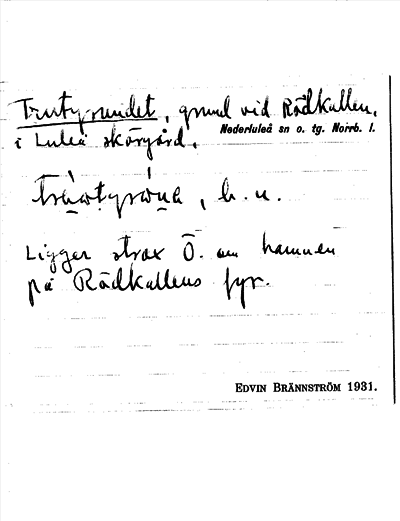 Trutgrundet, grund vid Rödkallen,
i Luleå skärgård.
Nederluleå sn o. tg. Norrb. l.
b. u.
Ligger strax Ö. om hamnen
på Rödkallens fyr.
EDVIN BRÄNNSTRÖM 1931.